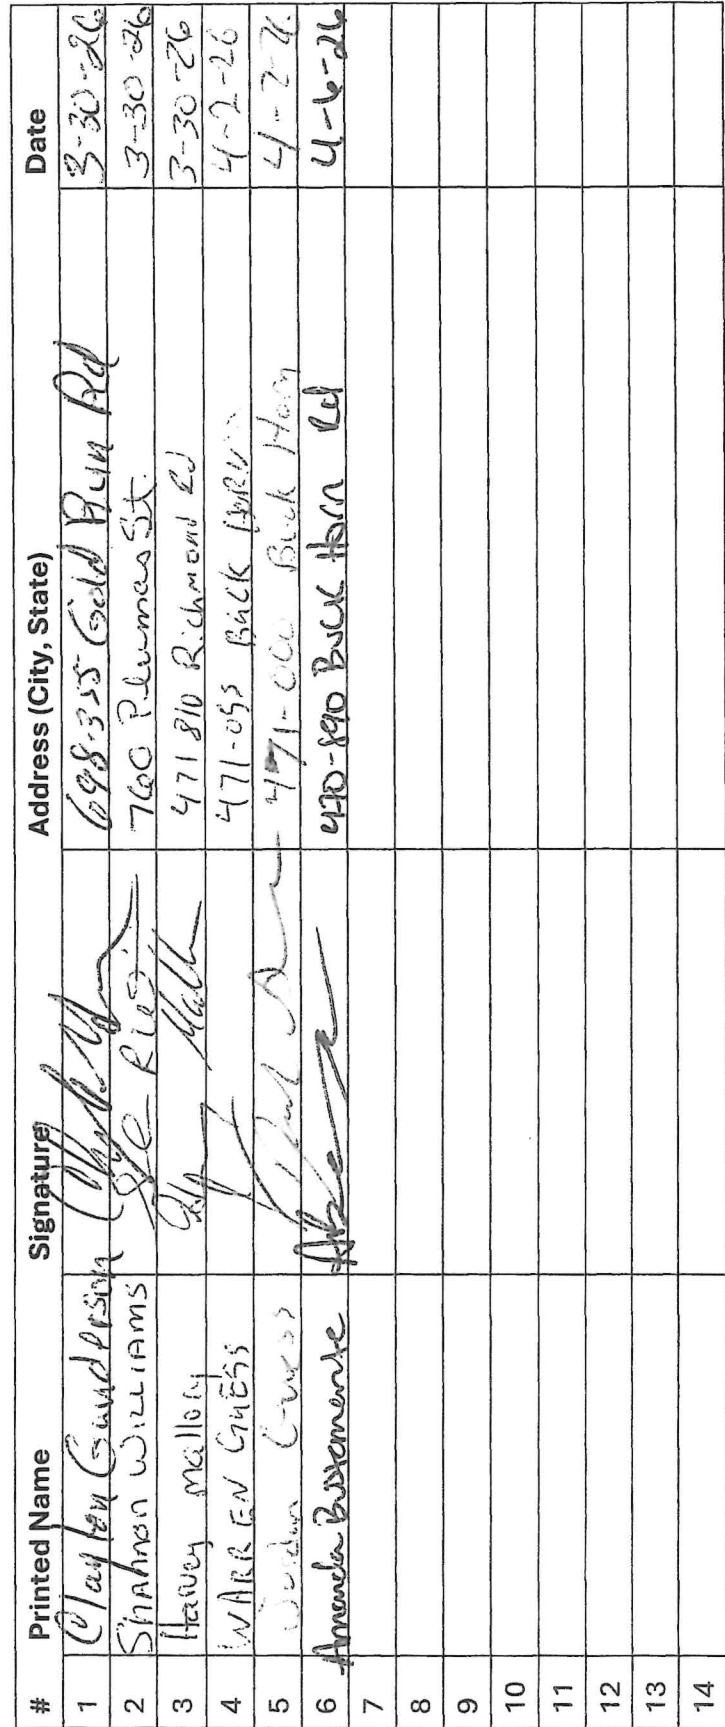 # Printed Name Signature Address (City, State) Date
1 Clayton Gunderson 698-355 Gold Run Rd 3-30-26
2 Shannon Williams 760 Plumas St. 3-30-26
3 Harvey Mallory 471 810 Richmond Rd 3-30-26
4 WARREN GUESS 471-055 Buck 4-2-26
5 Guess 471-000 Buck Horn 4-2-26
6 Amanda Bustamante 470-890 Buck Horn Rd 4-6-26
7
8
9
10
11
12
13
14